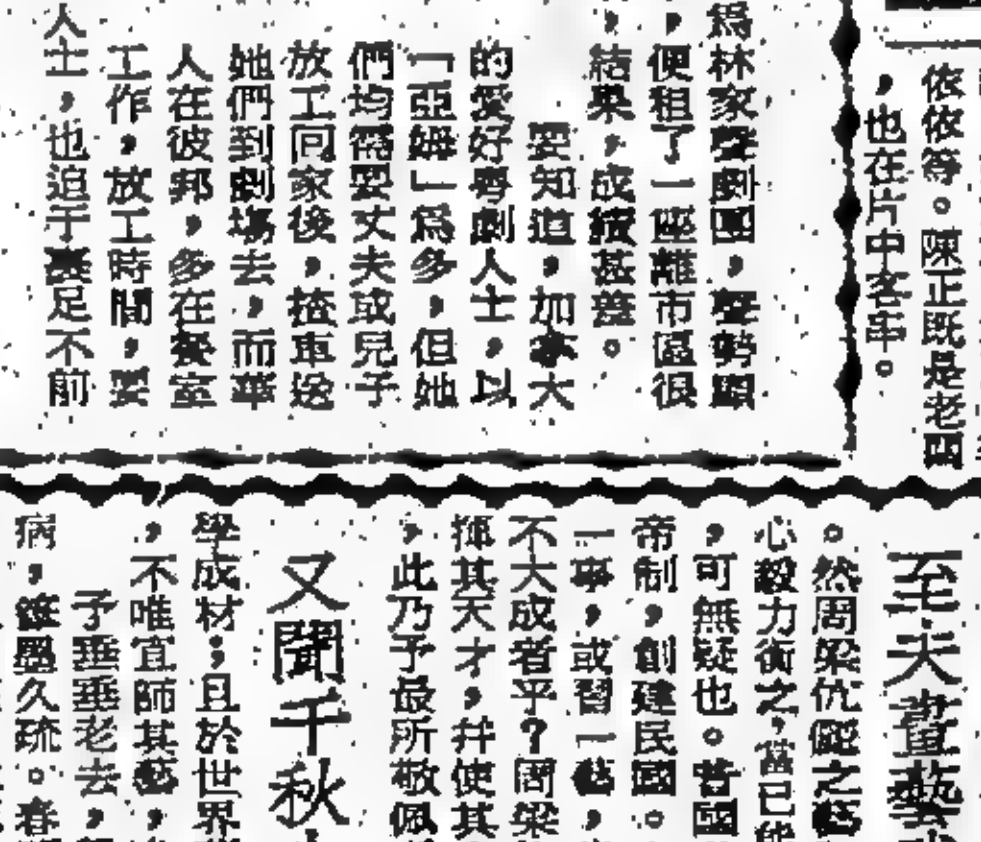 依依等。陳正既是老闆
，也在片中客串。
爲林家聲劇團，聲勢顯
，便租了一座離市區很
，結果，成績甚善。
要知道，加拿大
的愛好粵劇人士，以
「亞姆」爲多，但她
們均需要丈夫或兒子
放工回家後，揸車送
她們到劇場去，而華
人在彼邦，多在餐室
工作，放工時間，要
人士，也迫于裹足不前
至夫畫藝
。然周梁伉儷之藝
心毅力衡之，當已能
，可無疑也。昔國
帝制，創建民國。
一事，或習一藝，
不大成者乎？周梁
揮其天才，幷使其
，此乃予最所敬佩
又聞千秋
學成材；且於世界
，不唯宜師其藝，
予垂垂老去，
病，紙墨久疏。春